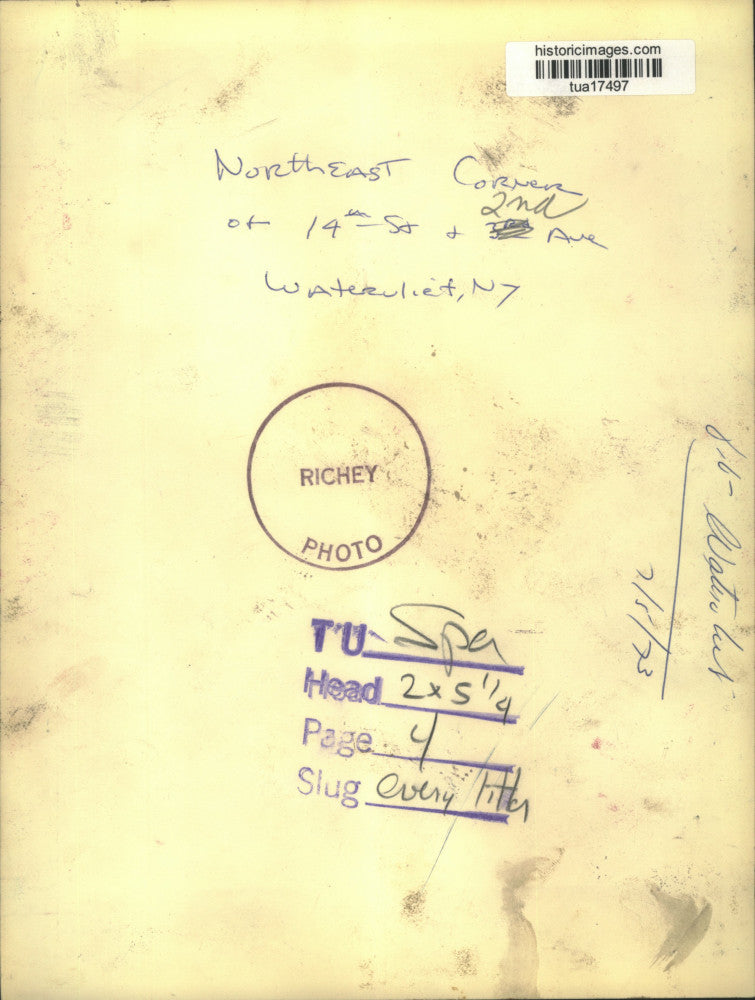 historicimages.com
tua17497
Northeast Corner
of 14th St + 2nd Ave
Watervliet, NY
RICHEY
PHOTO
TU
Head 2 x 5 1/4
Page 4
Slug every
Watervliet